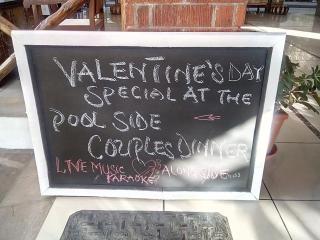 VALENTINE'S DAY
SPECIAL AT THE
POOL SIDE
COUPLES DINNER
LIVE MUSIC ALONG SIDE
KARAOKE